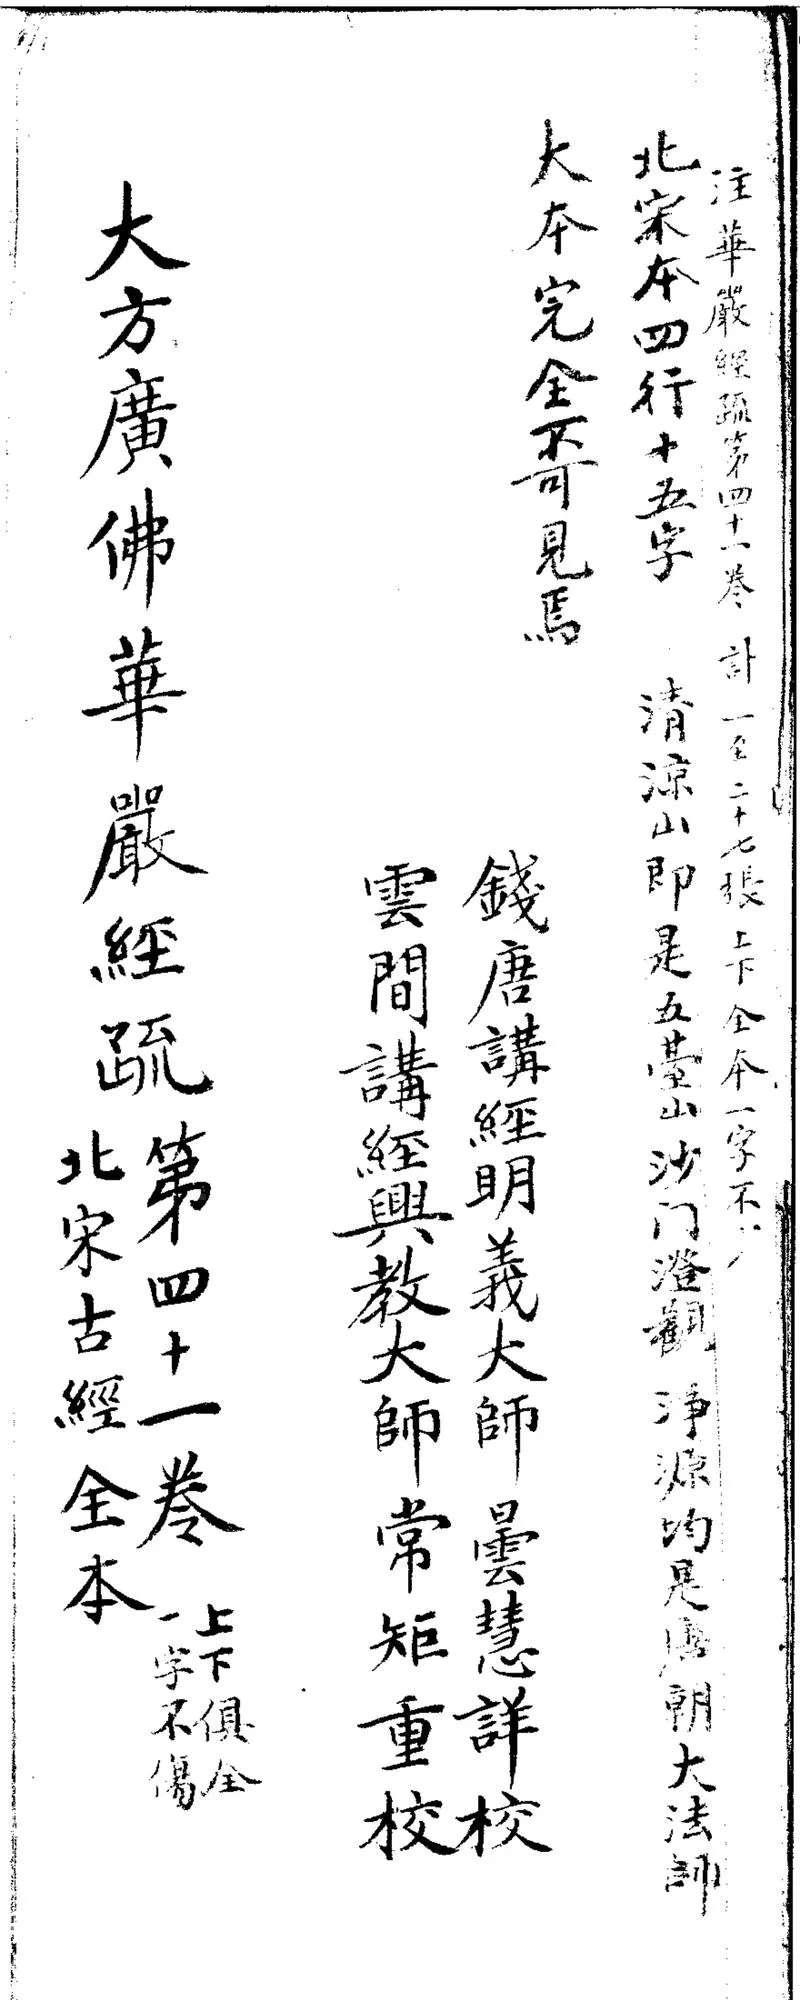 注華嚴經疏第四十一卷 計一至二十七張上下全本一字不少
北宋本四行十五字 清涼山即是五臺山沙门澄觀 淨源均是唐朝大法師
大本完全不可見焉
錢唐講經明義大師曇慧詳校
雲間講經興教大師常矩重校
大方廣佛華嚴經疏第四十一卷 上下俱全
一字不傷
北宋古經全本